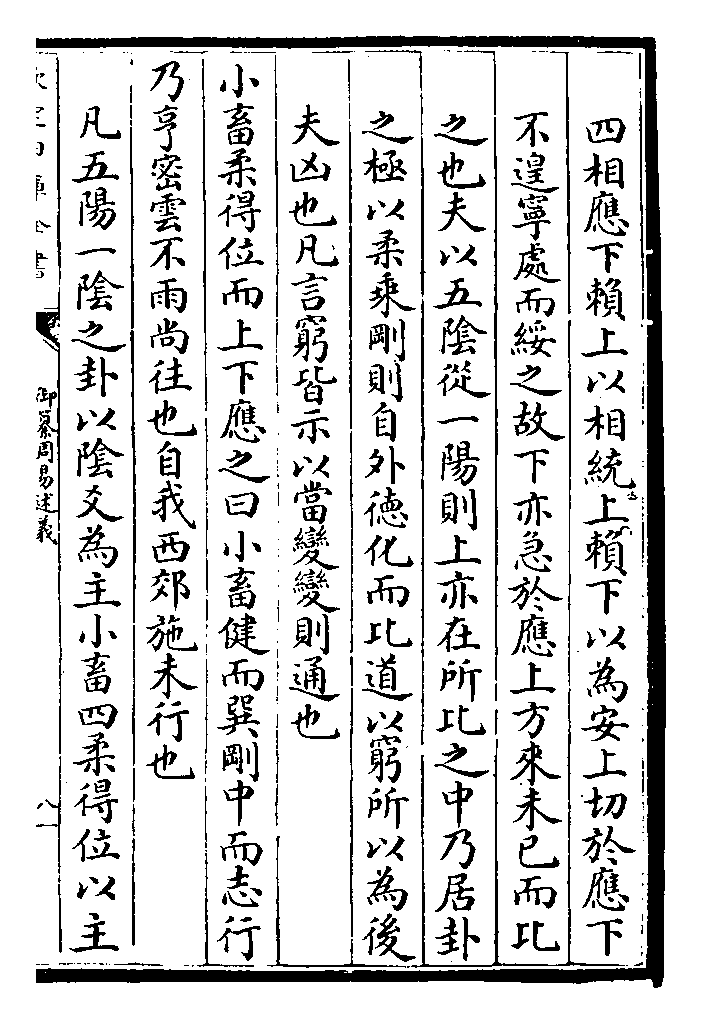 四相應下賴上以相統上賴下以為安上切於應下
不遑寧處而綏之故下亦急於應上方來未已而比
之也夫以五陰從一陽則上亦在所比之中乃居卦
之極以柔乘剛則自外德化而比道以窮所以為後
夫凶也凡言窮皆示以當變變則通也
小畜柔得位而上下應之曰小畜健而巽剛中而志行
乃亨密雲不雨尚往也自我西郊施未行也
凡五陽一陰之卦以陰爻為主小畜四柔得位以主
欽定四庫全書
御纂周易述義
八